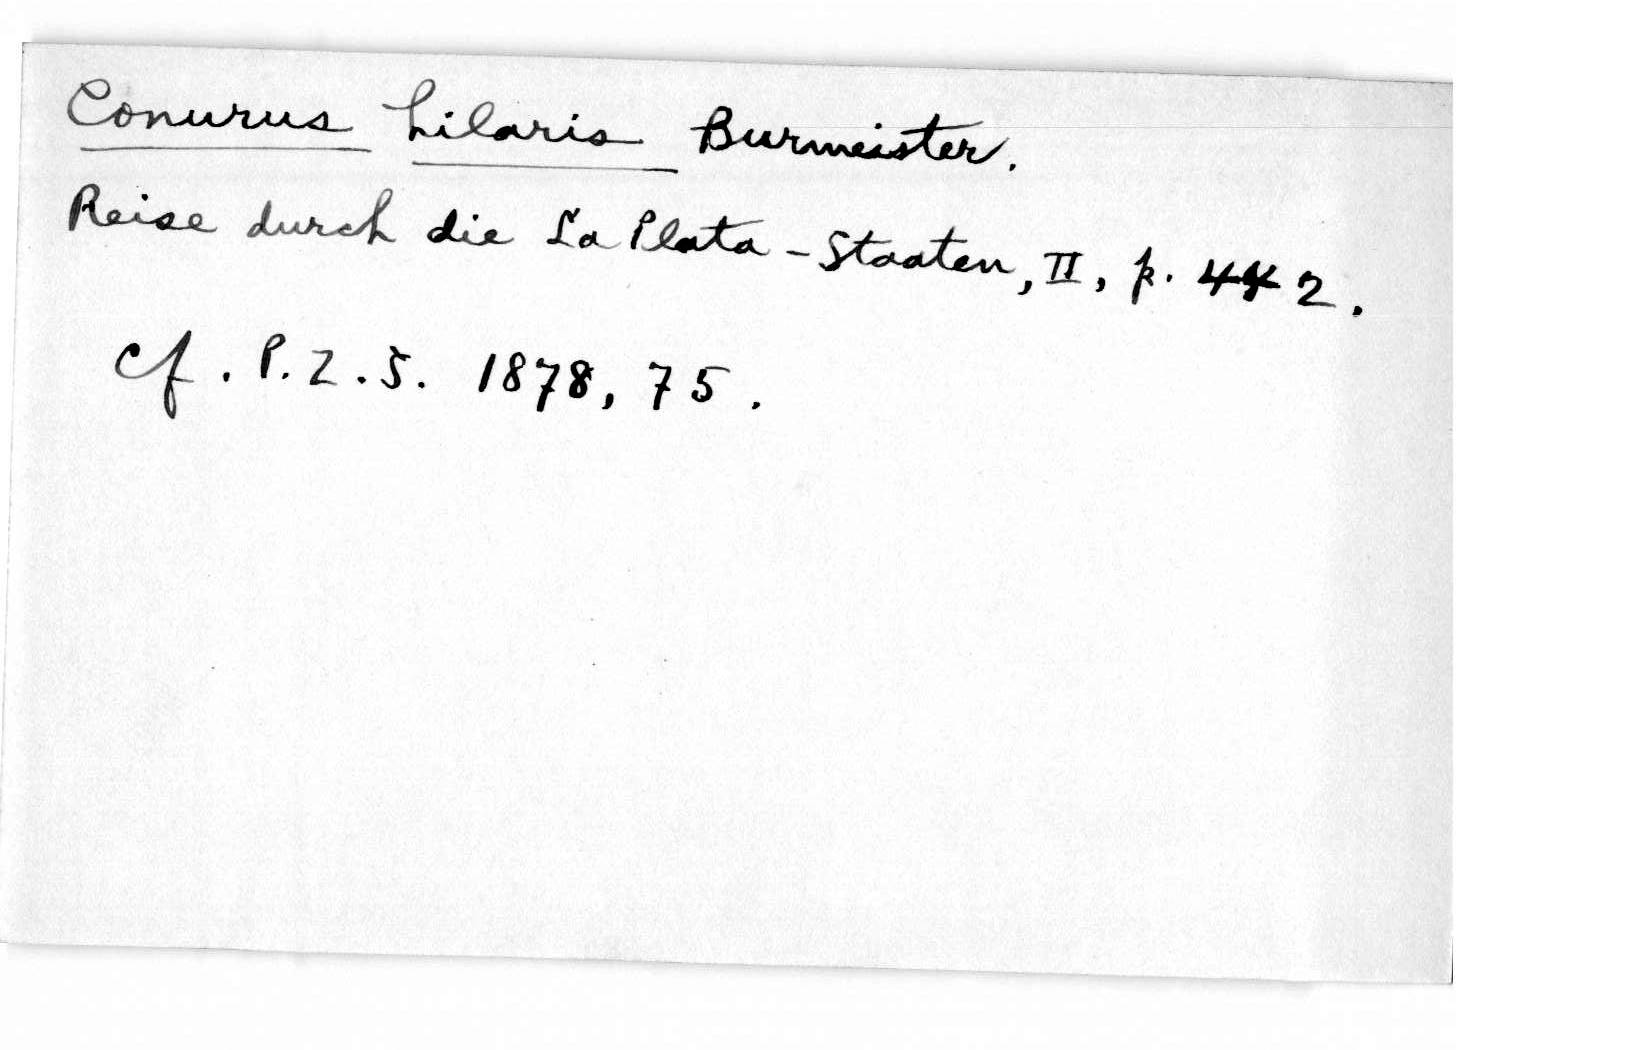 Conurus hilaris Burmeister.
Reise durch die La Plata - Staaten, II, p. 442.
cf. P. Z. S. 1878, 75.